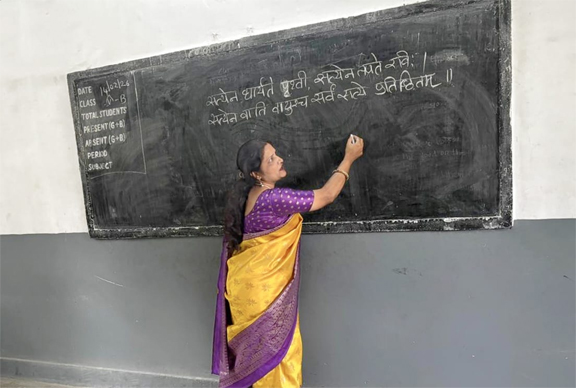 DATE 14/02/26
CLASS 9-B
TOTAL STUDENTS
PRESENT (G+B)
ABSENT (G+B)
PERIOD
SUBJECT
सत्येन धार्यते पृथ्वी सत्येन तपते रविः।
सत्येन वाति वायुश्च सर्वं सत्ये प्रतिष्ठितम् ॥